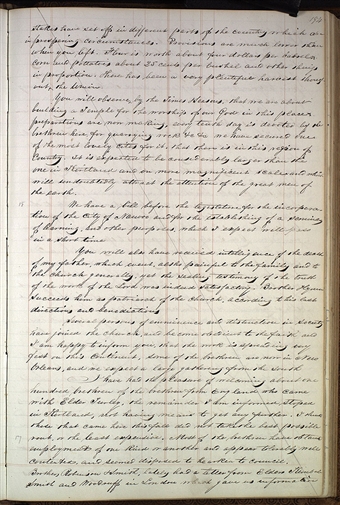 194
Stakes have set off in different parts of the country which are
in prospering circumstances. Provisions are much lower than
when you left. Flour is worth about four dollars per barrel
corn and potatoes about 25 cents per bushel and other things
in proportion. There has been a very plentiful harvest through-
out the Union.
You will observe, by the Times &amp; Seasons, that we are about
building a Temple for the worship of our God in this place
preparations are now making, every tenth day is devoted by the
brethren here for quarrying rock &c &c we have secured one
of the most lovely sites for it, that there is in this region of
Country. It is expected to be considerably larger than the
one in Kirtland and on a more magnificent scale and which
will undoubtedly attract the attention of the great men of
the earth.
We have a bill before the legislature for the incorpora-
tion of the City of Nauvoo and for the establishing of a Seminary
of learning, and other purposes, which I expect will pass
in a short time
You will also have received intelligence of the death
of my father, which event, altho painful to the family and to
the Church generally, yet the sealing testimony of the truth
of the work of the Lord was indeed satisfactory. Brother Hyrum
succeeds him as patriarch of the church, according to his last
directions and benedictions
Several persons of eminence and distinction in society
have joined the Church and become obedient to the faith and
I am happy to inform you that the work is spreading very
fast on this Continent, some of the brethren are now in New
Orleans, and we expect a large gathering from the South
I have had the pleasure of welcoming about one
hundred brethren of the brethren from England who came
with Elder Turley, the remainder I am informed stayed
in Kirtland, not having means to get any further. I think
those that came here this fall did not take the best possible
route, or the least expensive. Most of the brethren have obtained
employment of one kind or another and appear tolerably well
contented, and seemed disposed to hearken to council.
Brother Robinson &amp; Smith lately had a letter from Elders Kimball
Smith and Woodruff in London which gave us information